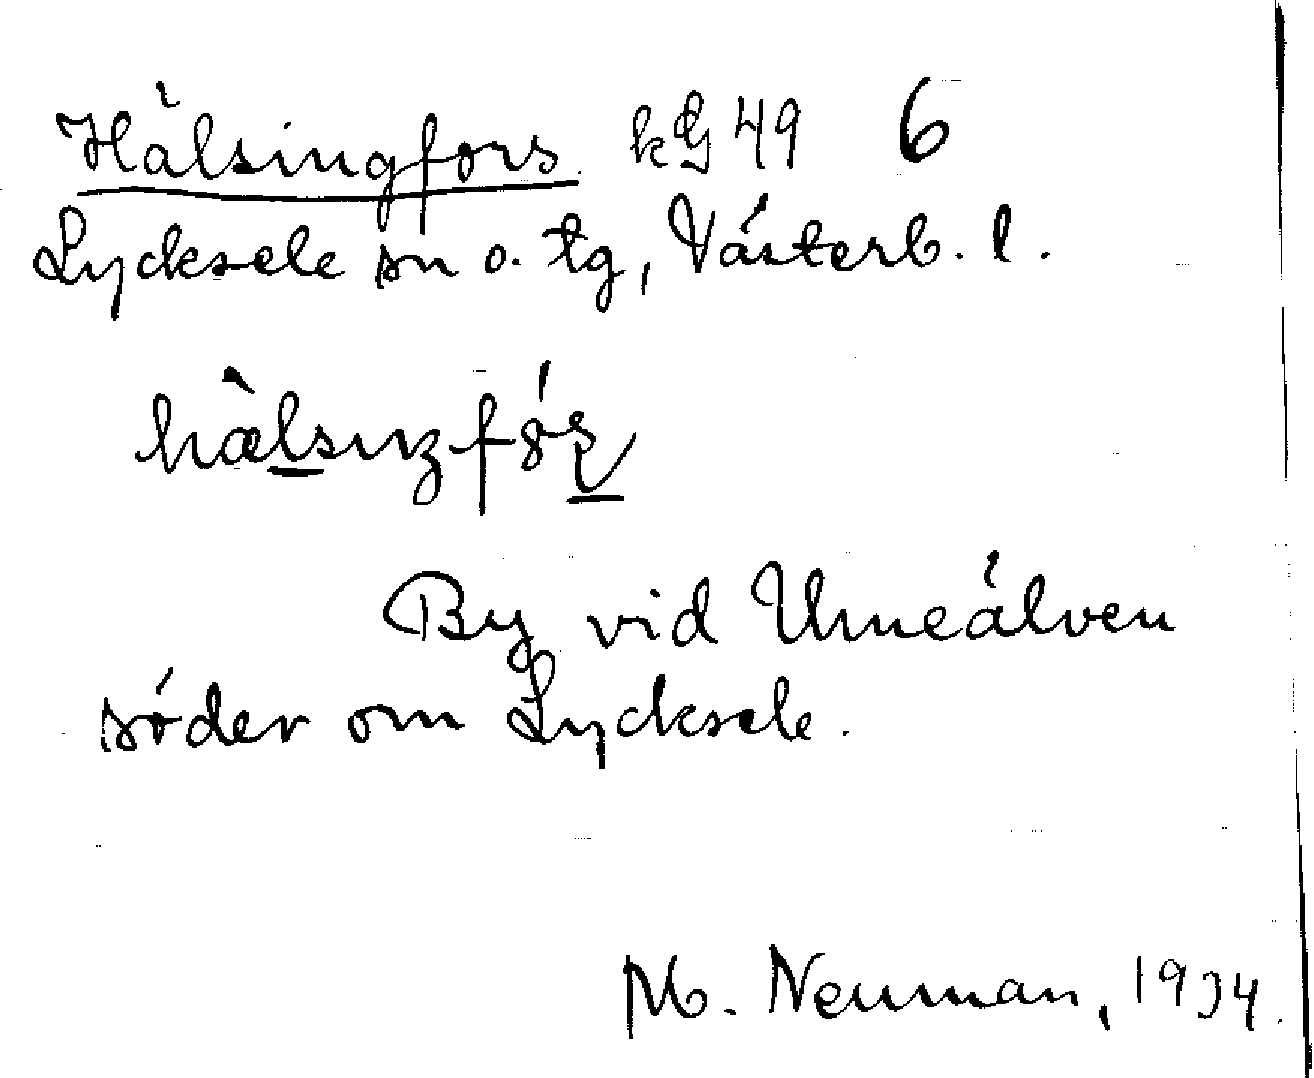 Hälsingfors kG 49 6
Lycksele sn o. tg, Västerb. l.
By vid Umeälven
söder om Lycksele.
M. Neuman, 1934.